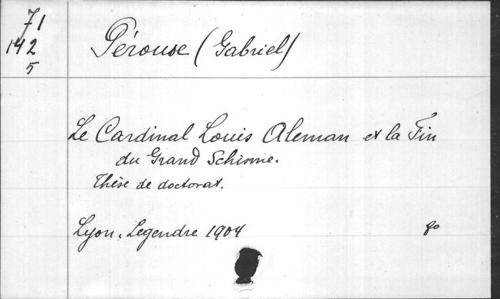 71
142
5
Pérouse (Gabriel)
Le Cardinal Louis Aleman et la Fin
du Grand Schisme.
Thèse de doctorat.
Lyon. Legendre 1904